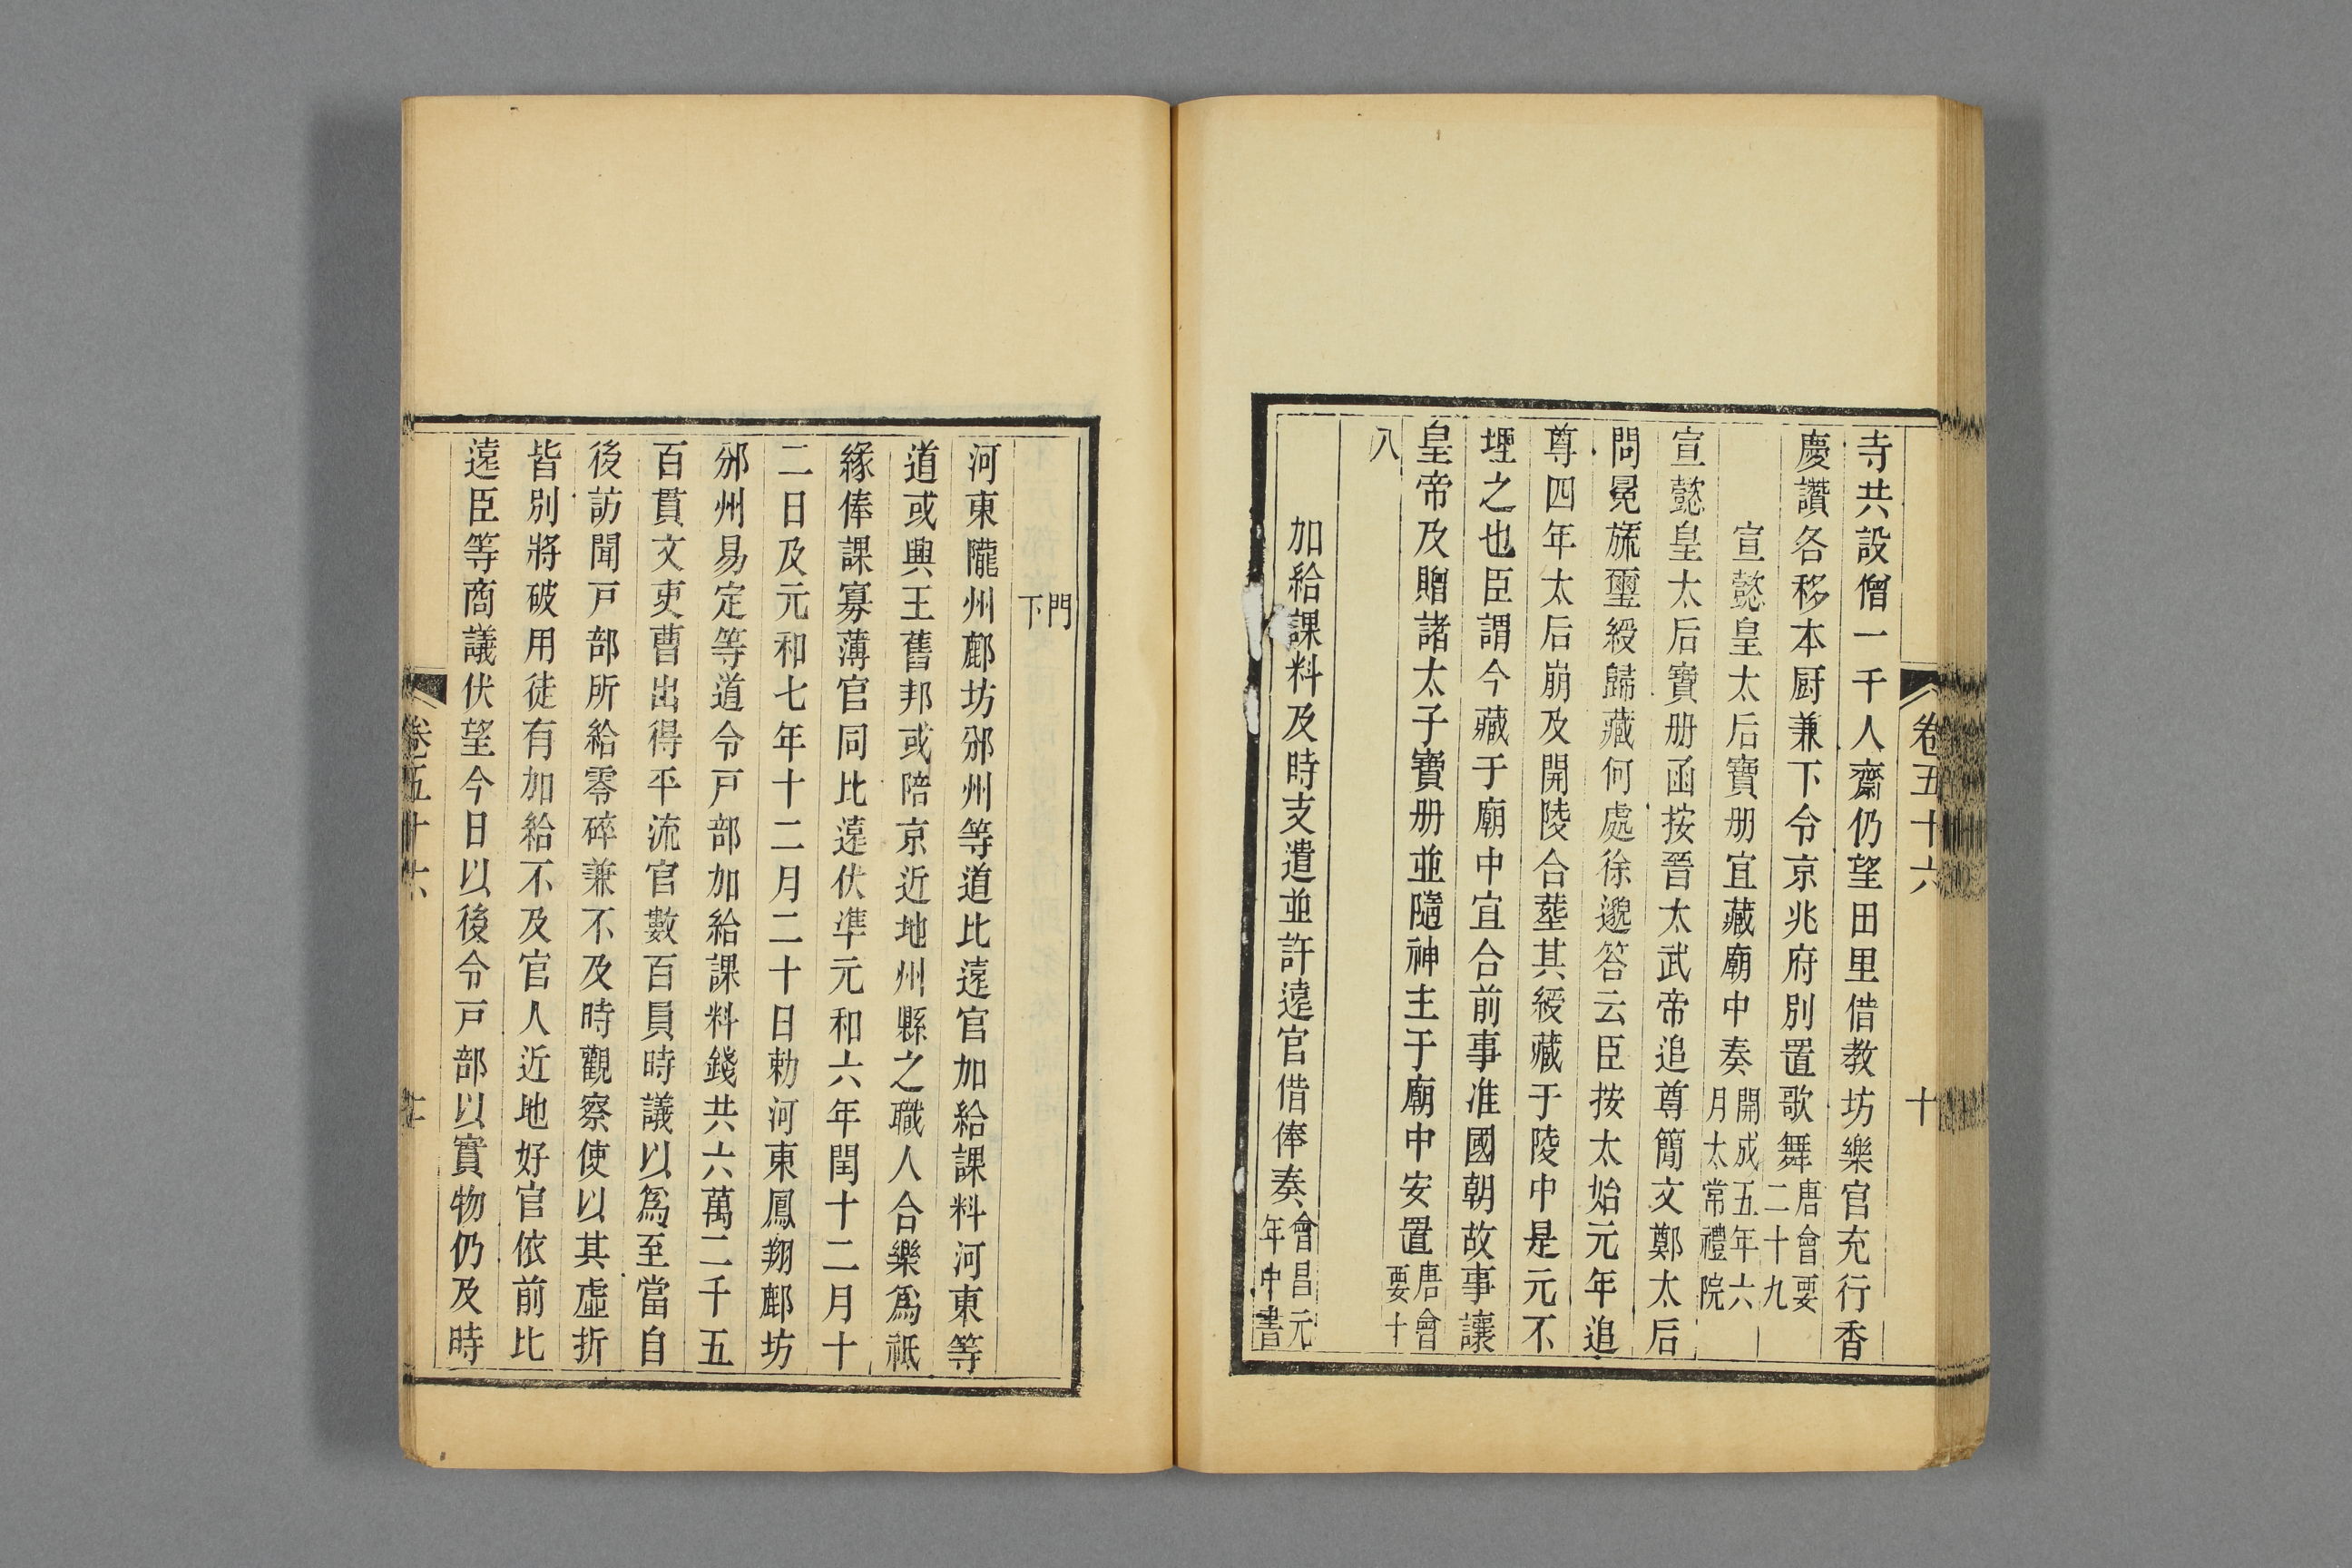 卷五十六
十
寺共設僧一千人齋仍望田里借教坊樂官充行香
慶讚各移本厨兼下令京兆府別置歌舞唐會要
二十九
宣懿皇太后寶册宜藏廟中奏開成五年六
月太常禮院
宣懿皇太后寶册函按晉太武帝追尊簡文鄭太后
問冕旒璽綬歸藏何處徐邈答云臣按太始元年追
尊四年太后崩及開陵合葬其綬藏于陵中是元不
堙之也臣謂今藏于廟中宜合前事准國朝故事讓
皇帝及贈諸太子寶册並隨神主于廟中安置唐會
要十
八
加給課料及時支遣並許遠官借俸奏會昌元
年中書
門
下
河東隴州鄜坊邠州等道比遠官加給課料河東等
道或興王舊邦或陪京近地州縣之職人合樂爲祗
緣俸課寡薄官同比遠伏準元和六年閏十二月十
二日及元和七年十二月二十日勅河東鳳翔鄜坊
邠州易定等道令戸部加給課料錢共六萬二千五
百貫文吏曹出得平流官數百員時議以爲至當自
後訪聞戸部所給零碎兼不及時觀察使以其虛折
皆別將破用徒有加給不及官人近地好官依前比
遠臣等商議伏望今日以後令戸部以實物仍及時
卷五十六